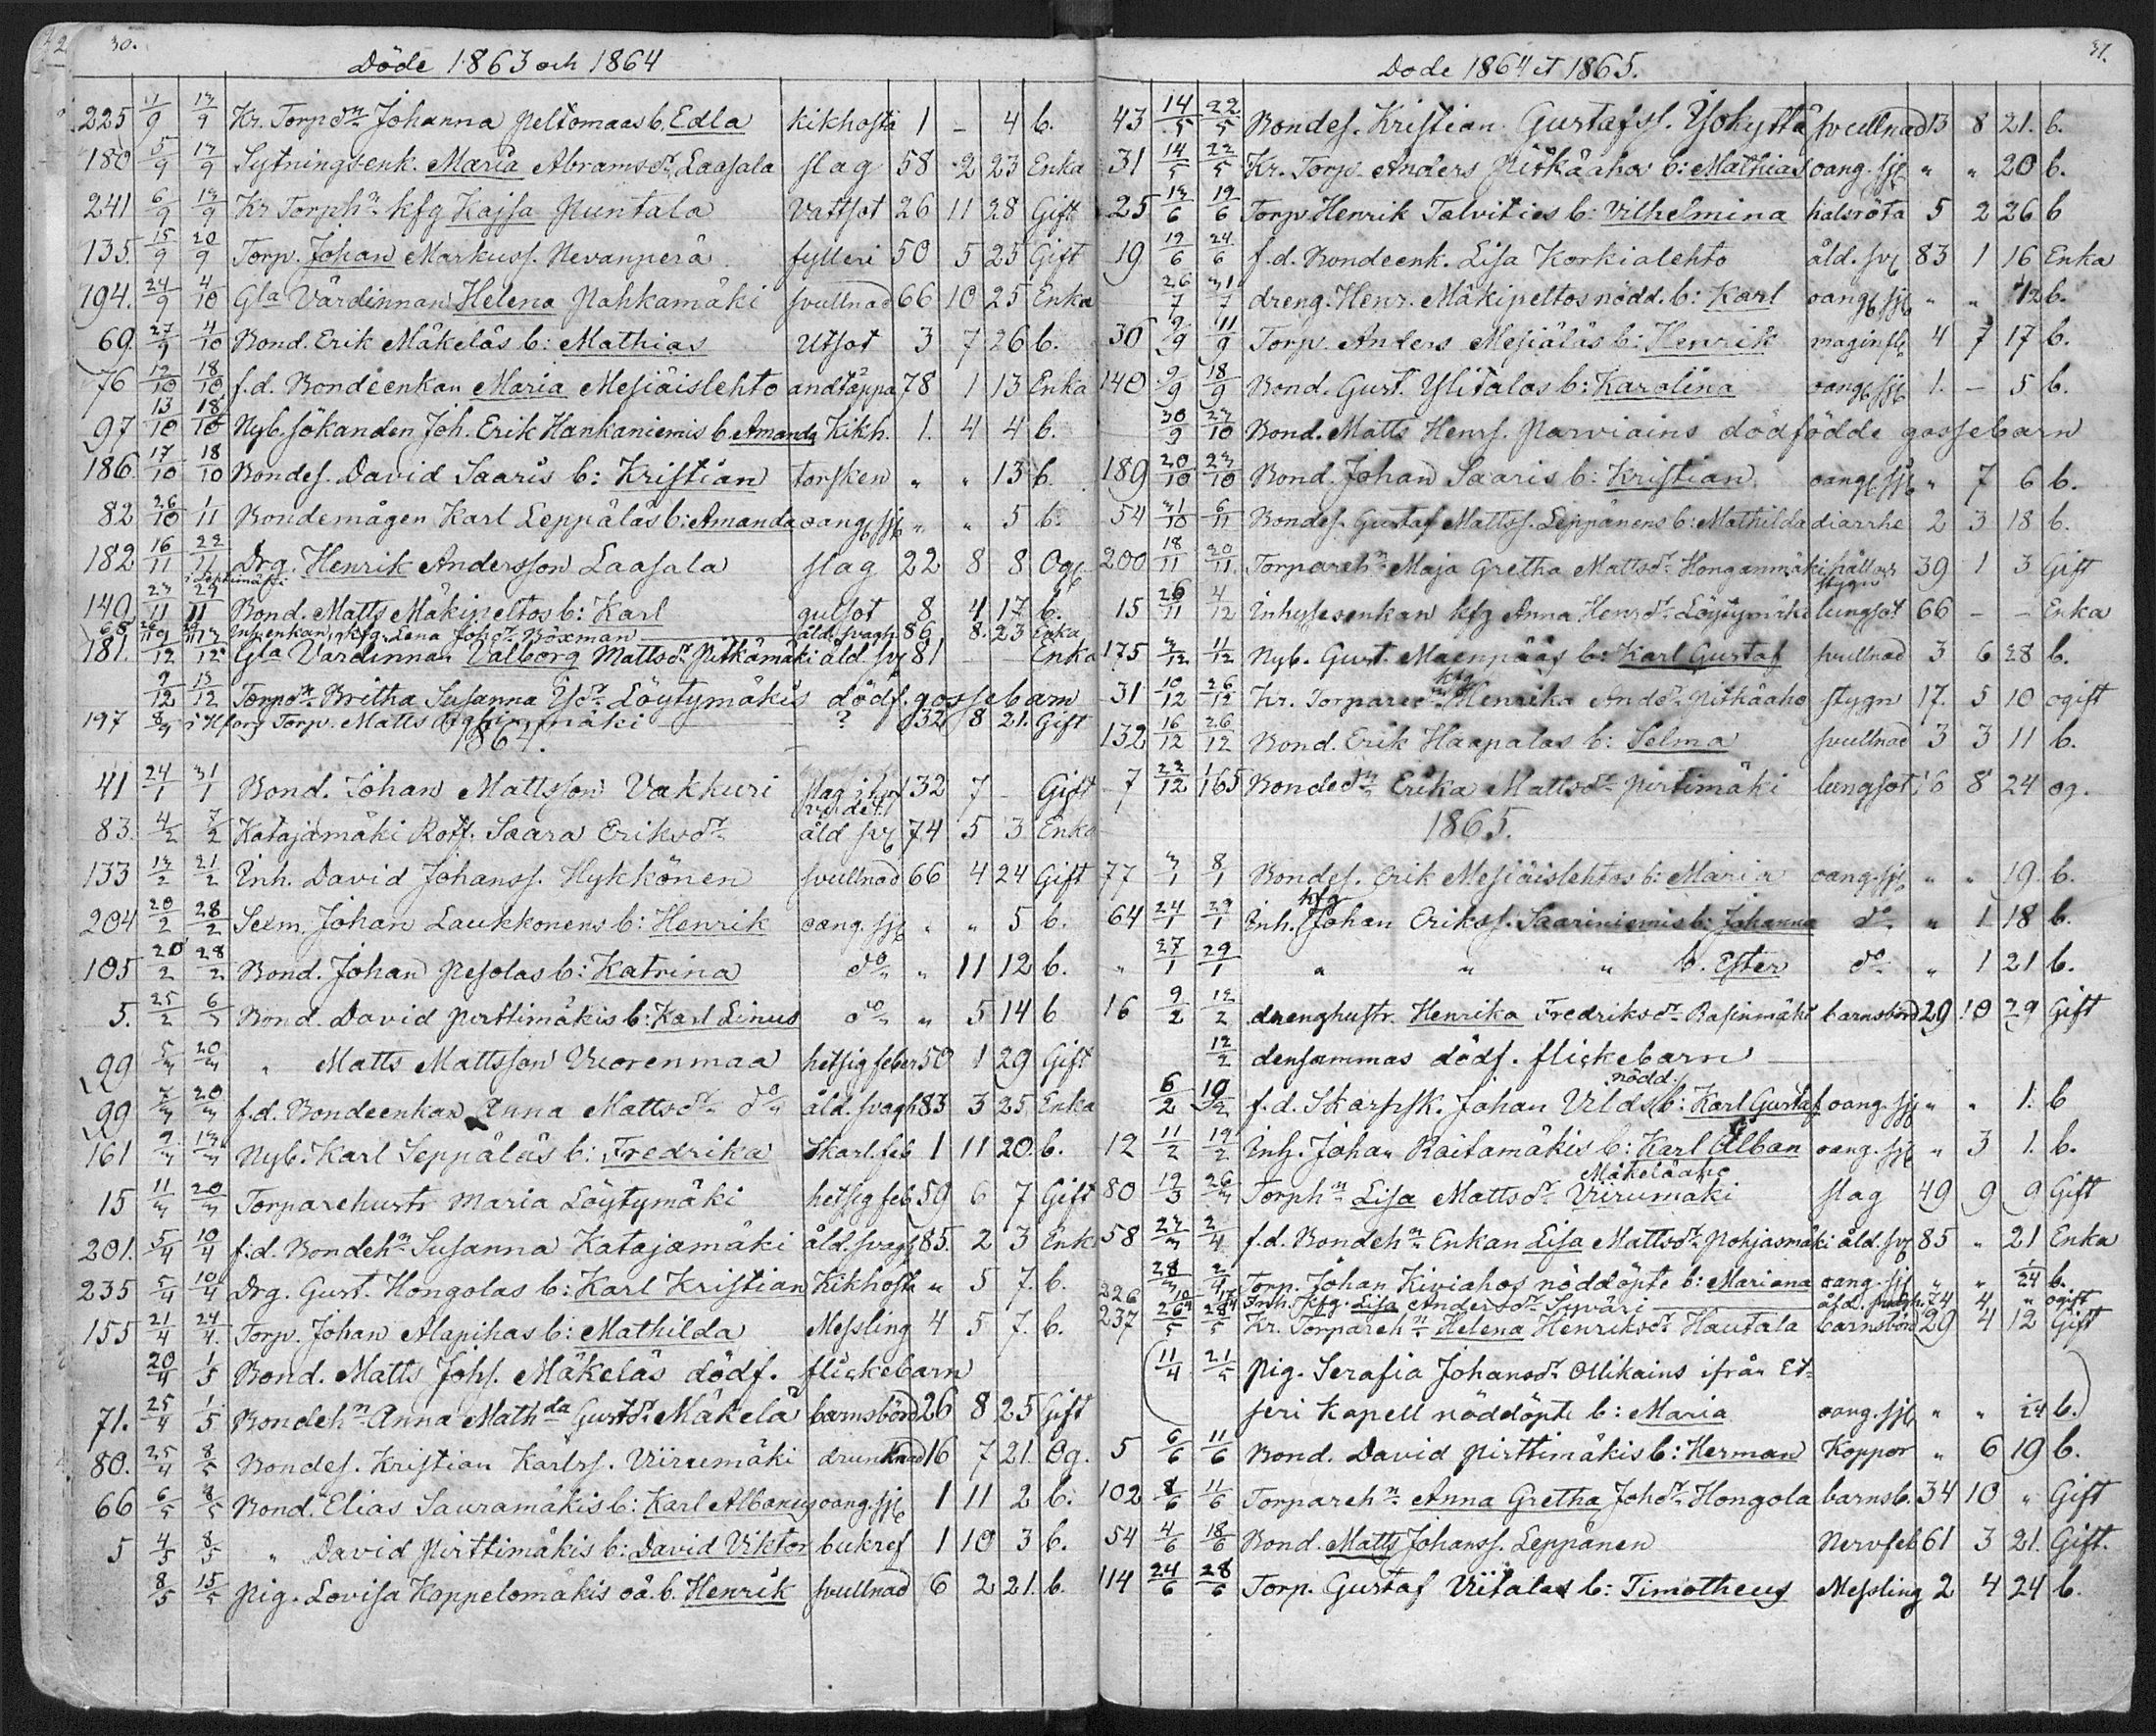 30.
Döde 1863 och 1864
225 11/9 13/9 Kr. Torpdr Johanna Peltomaas b. Edla kikhosta 1 – 4 b.
180 5/9 13/9 Sytningsenk. Maria Abramsdr Laasala slag 58 2 23 Enka
241 6/9 13/9 Kr Torphn kfg Kajsa Puntala Vattsot 26 11 28 Gift
135. 15/9 20/9 Torp. Johan Markuss. Nevanperä fylleri 50 5 25 Gift
194. 24/9 4/10 Gla Värdinnan Helena Pahkamäki svullnad 66 10 25 Enka
69. 27/9 4/10 Bond. Erik Mäkeläs b: Mathias Utsot 3 7 26 b.
76 12/10 18/10 f.d. Bondeenkan Maria Mesiäislehto andtäppa 78 1 13 Enka
97 13/10 18/10 Nyb. sökanden Joh. Erik Hankaniemis b. Amanda Kikh. 1. 4 4 b.
186. 17/10 18/10 Bondes. David Saaris b: Kristian torsken " " 13 b.
82 26/10 1/11 Bondemågen Karl Leppäläs b: Amanda oang. sjk " " 5 b.
182 16/11 22/11 Drg. Henrik Andersson Laasala slag 22 8 8 Og.
149 23/11 29/11 Bond. Matts Mäkipeltos b: Karl gulsot 8 4 17 b.
68 Inh. enkan kfg. Lena Johdr Böxman åld. svagh 86 8. 23 Enka
181. /12 /12 Gla Värdinnan Valborg Mattsdr Pitkämäki åld. sv 81 – – Enka
9/12 13/12 Torpdr Britha Susanna Isdr Löytymäkis dödf. gossebarn
197 8/9 i Hfors Torp. Matts mäki ? 32 8 21. Gift
1864.
41 24/1 31/1 Bond. Johan Mattsson Vakkuri slag 32 7 – Gift
83. 4/2 7/2 Katajamäki Rotf. Saara Eriksdr åld sv 74 5 3 Enka
133 13/2 21/2 Inh. David Johanss. Hykkönen svullnad 66 4 24 Gift
204 20/2 28/2 Sexm. Johan Laukkonens b: Henrik oang. sjk " " 5 b.
105 20/2 28/2 Bond. Johan Pesolas b: Katrina do " 11 12 b.
5. 25/2 6/3 Bond. David Pirttimäkis b: Karl Linus do " 5 14 b
99 5/3 20/3 " Matts Mattsson Vuorenmaa hetsig feber 50 1 29 Gift
99 7/3 20/3 f.d. Bondeenkan Anna Mattsdr do åld. svagh 83 3 25 Enka
161 9/3 13/3 Nyb. Karl Seppäläs b: Fredrika Skarl. feb 1 11 20. b.
15 11/3 20/3 Torparehustr Maria Löytymäki hetsig feb 59 6 7 Gift
201. 5/4 10/4 f:d. Bondehn Susanna Katajamäki åld. svagh 85. 2 3 Enk
235 5/4 10/4 Drg. Gust. Hongolas b: Karl Kristian Kikhosta " 5 7. b.
155 21/4 24/4 Torp. Johan Alapihas b: Mathilda Messling 4 5 7. b.
20/4 1/5 Bond. Matts Johs. Mäkeläs dödf. flickebarn
71. 25/4 1/5 Bondehn Anna Mathda Gustdr Mäkelä barnsbörd 26 8 25 Gift
80. 25/4 8/5 Bondes. Kristian Karlss. Viirumäki drunknad 16 7 21. Og.
66 6/5 8/5 Bond. Elias Sauramäkis b: Karl Albanus oang. sjk 1 11 2 b.
5 4/5 8/5 " David Pirttimäkis b: David Viktor bukref 1 10 3 b.
8/5 15/5 Pig. Lovisa Koppelomäkis oä. b. Henrik svullnad 6 2 21. b.
31.
Döde 1864 et 1865.
43 14/5 22/5 Bondes. Kristian Gustafss. Isokyttä svullnad 13 8 21. b.
31 14/5 22/5 Kr. Torp. Anders Pitkäahos b: Mathias oang. sjk " " 20 b.
25 13/6 19/6 Torp. Henrik Talvities b: Vilhelmina halsröta 5 2 26 b
19 19/6 24/6 f.d. Bondeenk. Lisa Korkialehto åld. sv 83 1 16 Enka
26/7 31/7 dreng. Henr. Mäkipeltos nödd. b: Karl oang sjk " " 1/2 b.
30 9/9 11/9 Torp. Anders Mesiäläs b: Henrik maginfl 4 7 17 b.
140 9/9 18/9 Bond. Gust. Ylitalos b: Karolina oang sjk 1. – 5 b.
30/9 23/10 Bond. Matts Henrs. Parviains dödfödde gossebarn
189 20/10 23/10 Bond. Johan Saaris b: Kristian oang sjk " 7 6 b.
54 31/10 6/11 Bondes. Gustaf Mattss. Leppänens b: Mathilda diarrhe 2 3 18 b.
200 18/11 20/11. Torparehn Maja Gretha Mattsdr Honganmäki håll stygn 39 1 3 Gift
15 26/11 4/12 Inhysesenkan kfg Anna Henrdr Löytymäki lungsot 66 – – Enka
175 3/12 11/12 Nyb. Gust. Maenpääs b: Karl Gustaf svullnad 3 6 28 b.
31 10/12 26/12 Kr. Torpare kfg Henrika Anddr Pitkäaho stygn 17. 5 10 ogift
132 16/12 26/12 Bond. Erik Haapalas b: Selma svullnad 3 3 11 b.
7 22/12 1/1 65 Bondedr Erika Mattsdr Pirttimäki lungsot 16 8 24 og.
1865.
77 3/1 8/1 Bondes. Erik Mesiäislehtos b: Maria oang. sjk " " 19. b.
64 24/1 29/1 Inh. kfg Johan Erikss. Saariniemis b: Johanna do " 1 18 b.
" 27/1 29/1 " " " b. Ester do " 1 21 b.
16 9/2 12/2 drenghustr. Henrika Fredriksdr Rasinmäki barnsbörd 29 10 29 Gift
12/2 densammas dödf. flickebarn
6/2 19/2 f.d. Skarpsk. Johan Ulds nödd. b: Karl Gustaf oang. sjk " " 1. b
12 11/2 19/2 Inh. Johan Raitamäkis b: Karl Alban oang. sjk " 3 1. b.
80 19/3 26/3 Torphn Lisa Mattsdr Viirumäki Mäkeläaho slag 49 9 9 Gift
58 23/3 2/4 f.d. Bondehn Enkan Lisa Mattsdr Pohjasmäki åld. sv 85 " 21 Enka
28/3 2/4 Torp. Johan Kiviahos nöddöpte b: Mariana oang. sjk " " 1/24 b.
226 10/4 17/4 Inh. kfg. Lisa Andersdr Syväri åld. svagh. 74 4 " ogift
237 26/5 28/5 Kr. Torparehn Helena Henriksdr Hautala barnsbörd 29 4 12 Gift
11/4 21/5 Pig. Serafia Johansdr Ollikains ifrån Et-
seri Kapell nöddöpte b: Maria oang. sjk " " 1/24 b.
5 6/6 11/6 Bond. David Pirttimäkis b: Herman Koppor " 6 19 b.
102 8/6 11/6 Torparehn Anna Gretha Johdr Hongola barnsb. 34 10 " Gift
54 4/6 18/6 Bond. Matts Johanss. Leppänen Nervfeb 61 3 21. Gift.
114 24/6 28/6 Torp. Gustaf Viitalas b: Timotheus Messling 2 4 24 b.